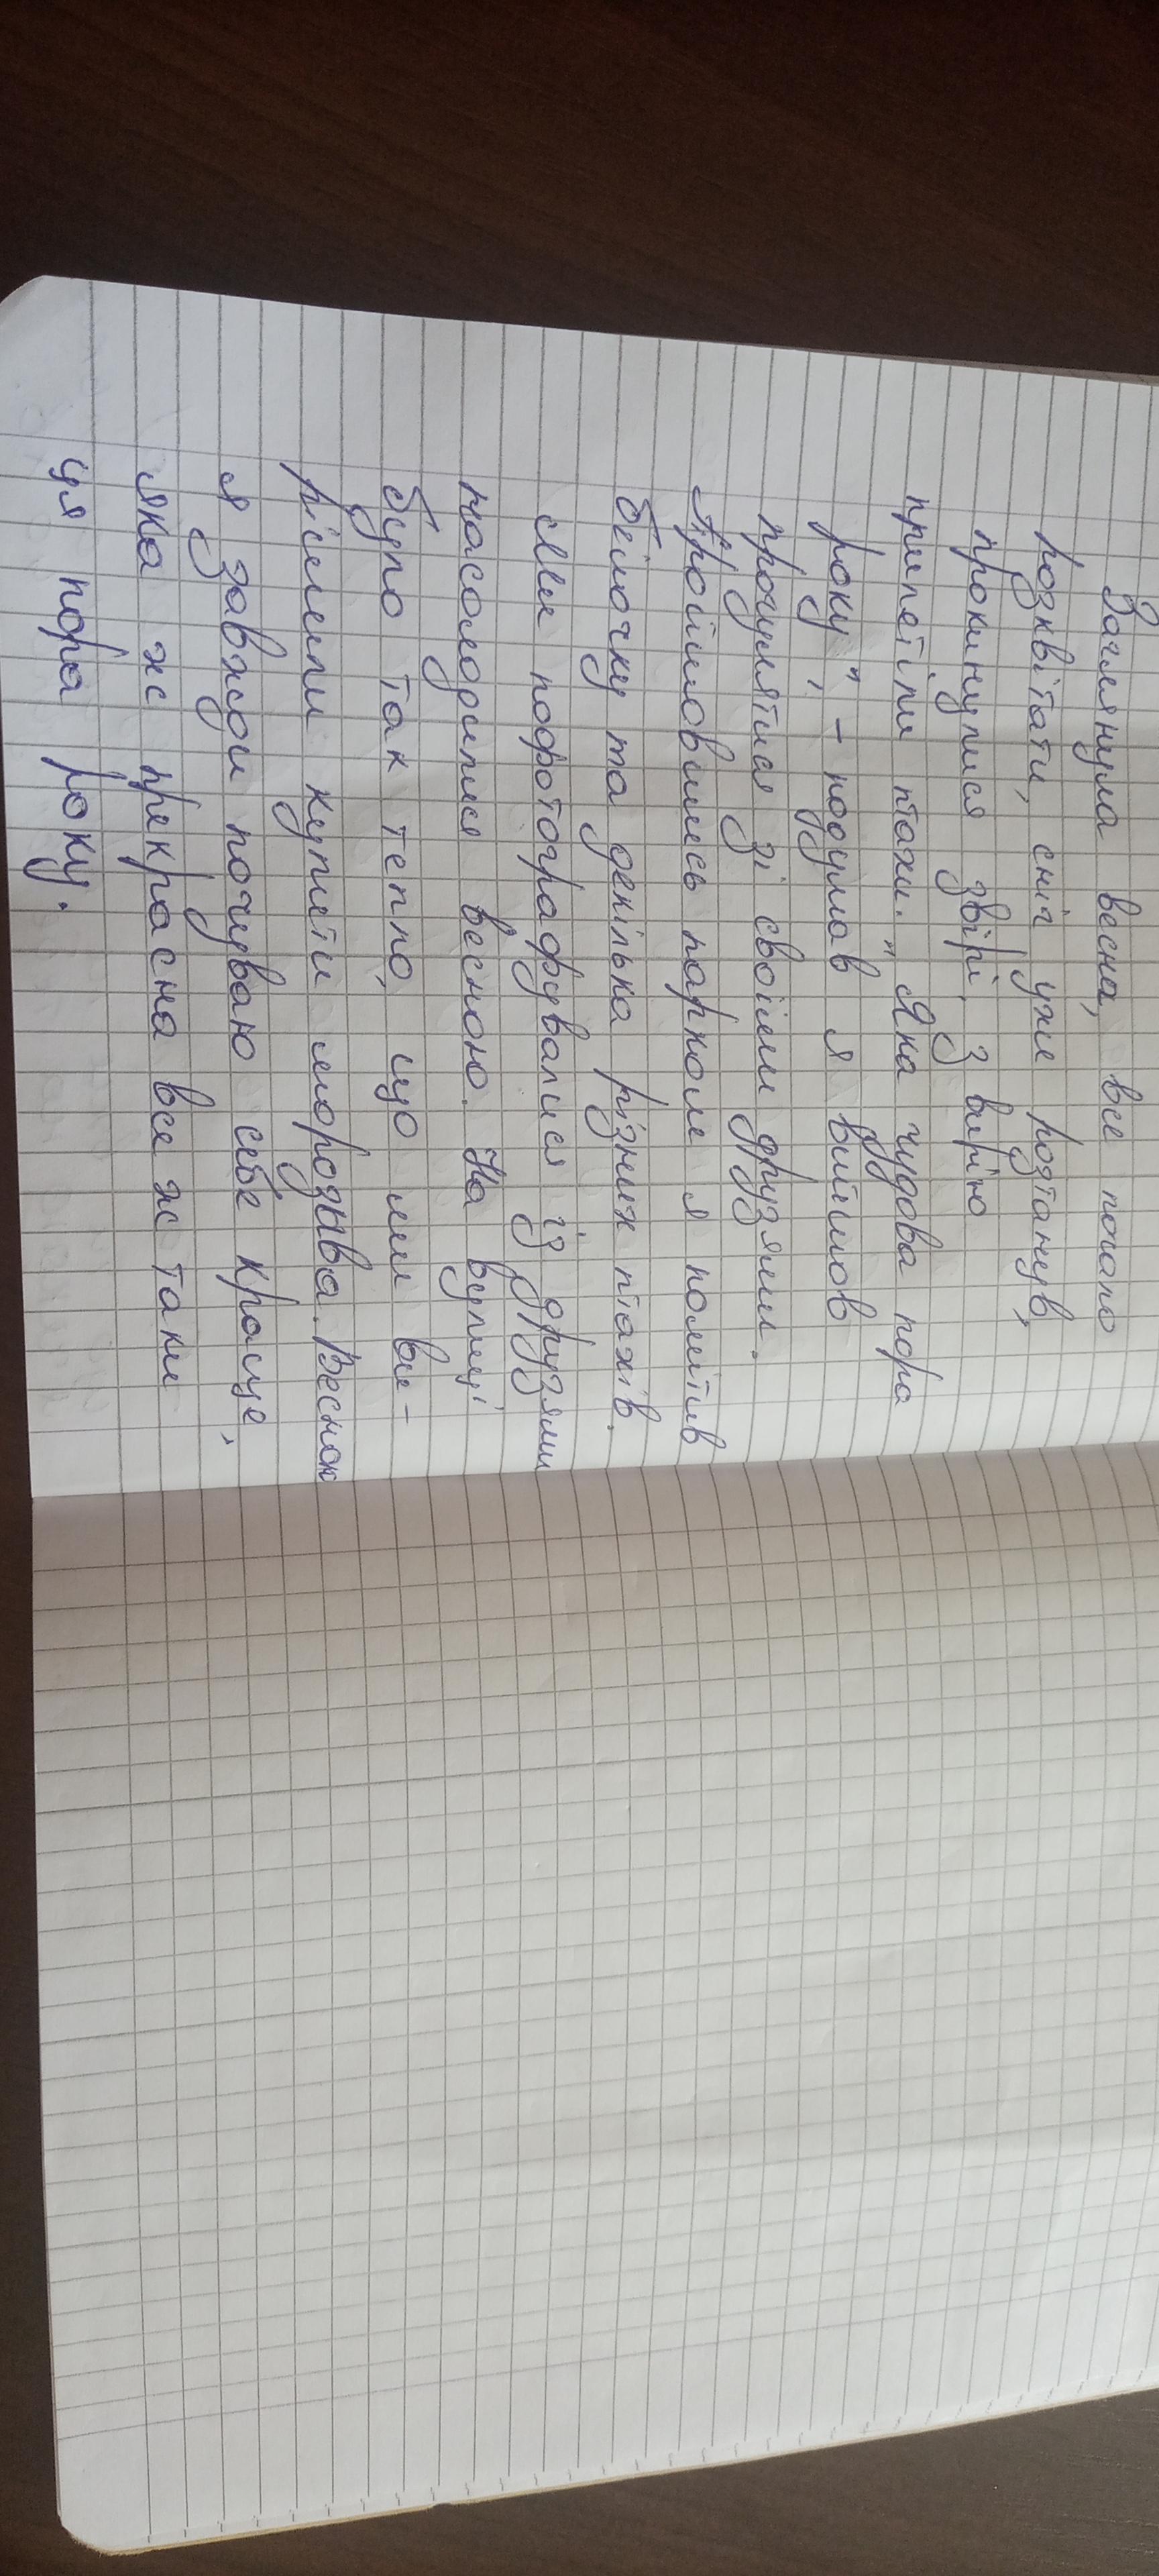 Заглянула весна, все почало
розквітати, сніг уже розтанув,
прокинулися звірі, з вирію
прилетіли птахи. "Яка чудова пора
року", - подумав я вийшов
прогулятися зі своїми друзями.
Пройшовшись парком я помітив
білочку та декілька різних птахів.
Ми пофотографувалися із друзями
насолодилися весною. На вулиці
було так тепло, що ми ви-
рішили купити морозыва. Весною
я завжди почуваю себе краще,
яка ж прекрасна все ж таки
ця пора року.